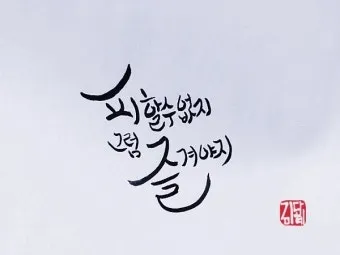 피할수없지
그럼
즐겨야지